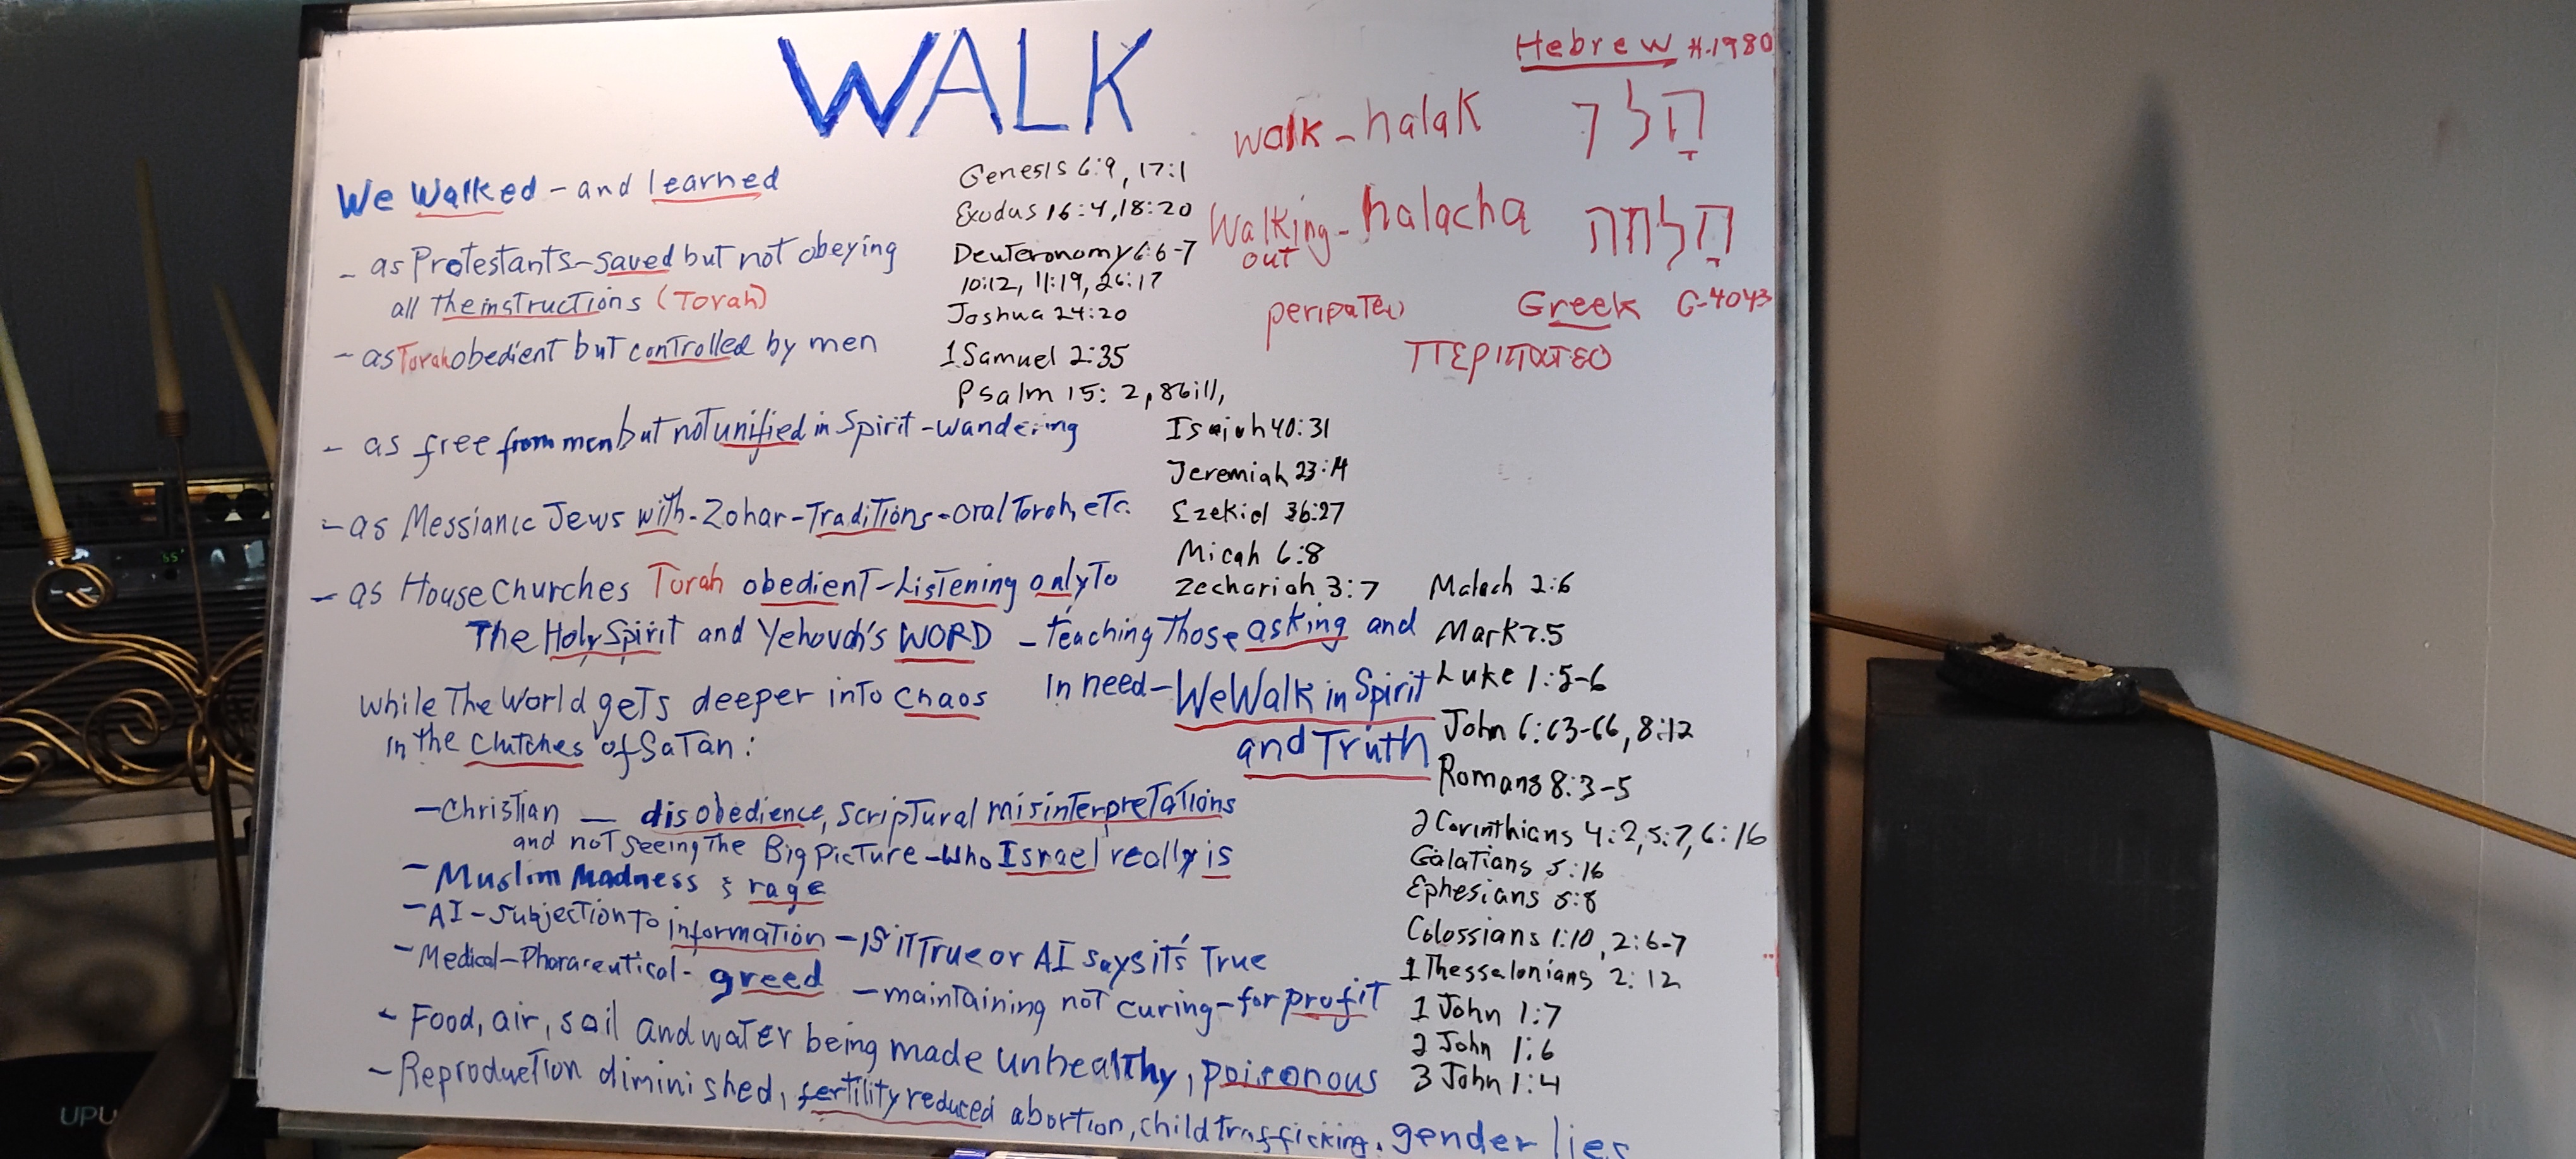 WALK
Hebrew H-1980
walk - halak הָלך
Walking - halacha הָלחה
out
Greek G-4043
peripateo
περιπατεο
We Walked - and learned
- as Protestants - saved but not obeying
all the instructions (Torah)
- as Torah obedient but controlled by men
- as free from men but not unified in Spirit - wandering
- as Messianic Jews with - Zohar - Traditions - oral Torah, etc.
- as House Churches Torah obedient - Listening only to
The Holy Spirit and Yehovah's WORD - teaching those asking and
in need - We Walk in Spirit
and Truth
while the World gets deeper into Chaos
in the Clutches of Satan:
- Christian — disobedience, scriptural misinterpretations
and not seeing The Big Picture - who Israel really is
- Muslim Madness & rage
- AI - subjection to information - is it True or AI says it's True
- Medical - Pharaceutical - greed - maintaining not curing - for profit
- Food, air, soil and water being made unhealthy, poisonous
- Reproduction diminished, fertility reduced abortion, child trafficking, gender lies
Genesis 6:9, 17:1
Exodus 16:4, 18:20
Deuteronomy 6:6-7
10:12, 11:19, 26:17
Joshua 24:20
1 Samuel 2:35
Psalm 15:2, 86:11,
Isaiah 40:31
Jeremiah 23:14
Ezekiel 36:27
Micah 6:8
Zechariah 3:7
Malach 2:6
Mark 7.5
Luke 1:5-6
John 6:63-66, 8:12
Romans 8:3-5
2 Corinthians 4:2, 5:7, 6:16
Galatians 5:16
Ephesians 5:8
Colossians 1:10, 2:6-7
1 Thessalonians 2:12
1 John 1:7
2 John 1:6
3 John 1:4
UPU